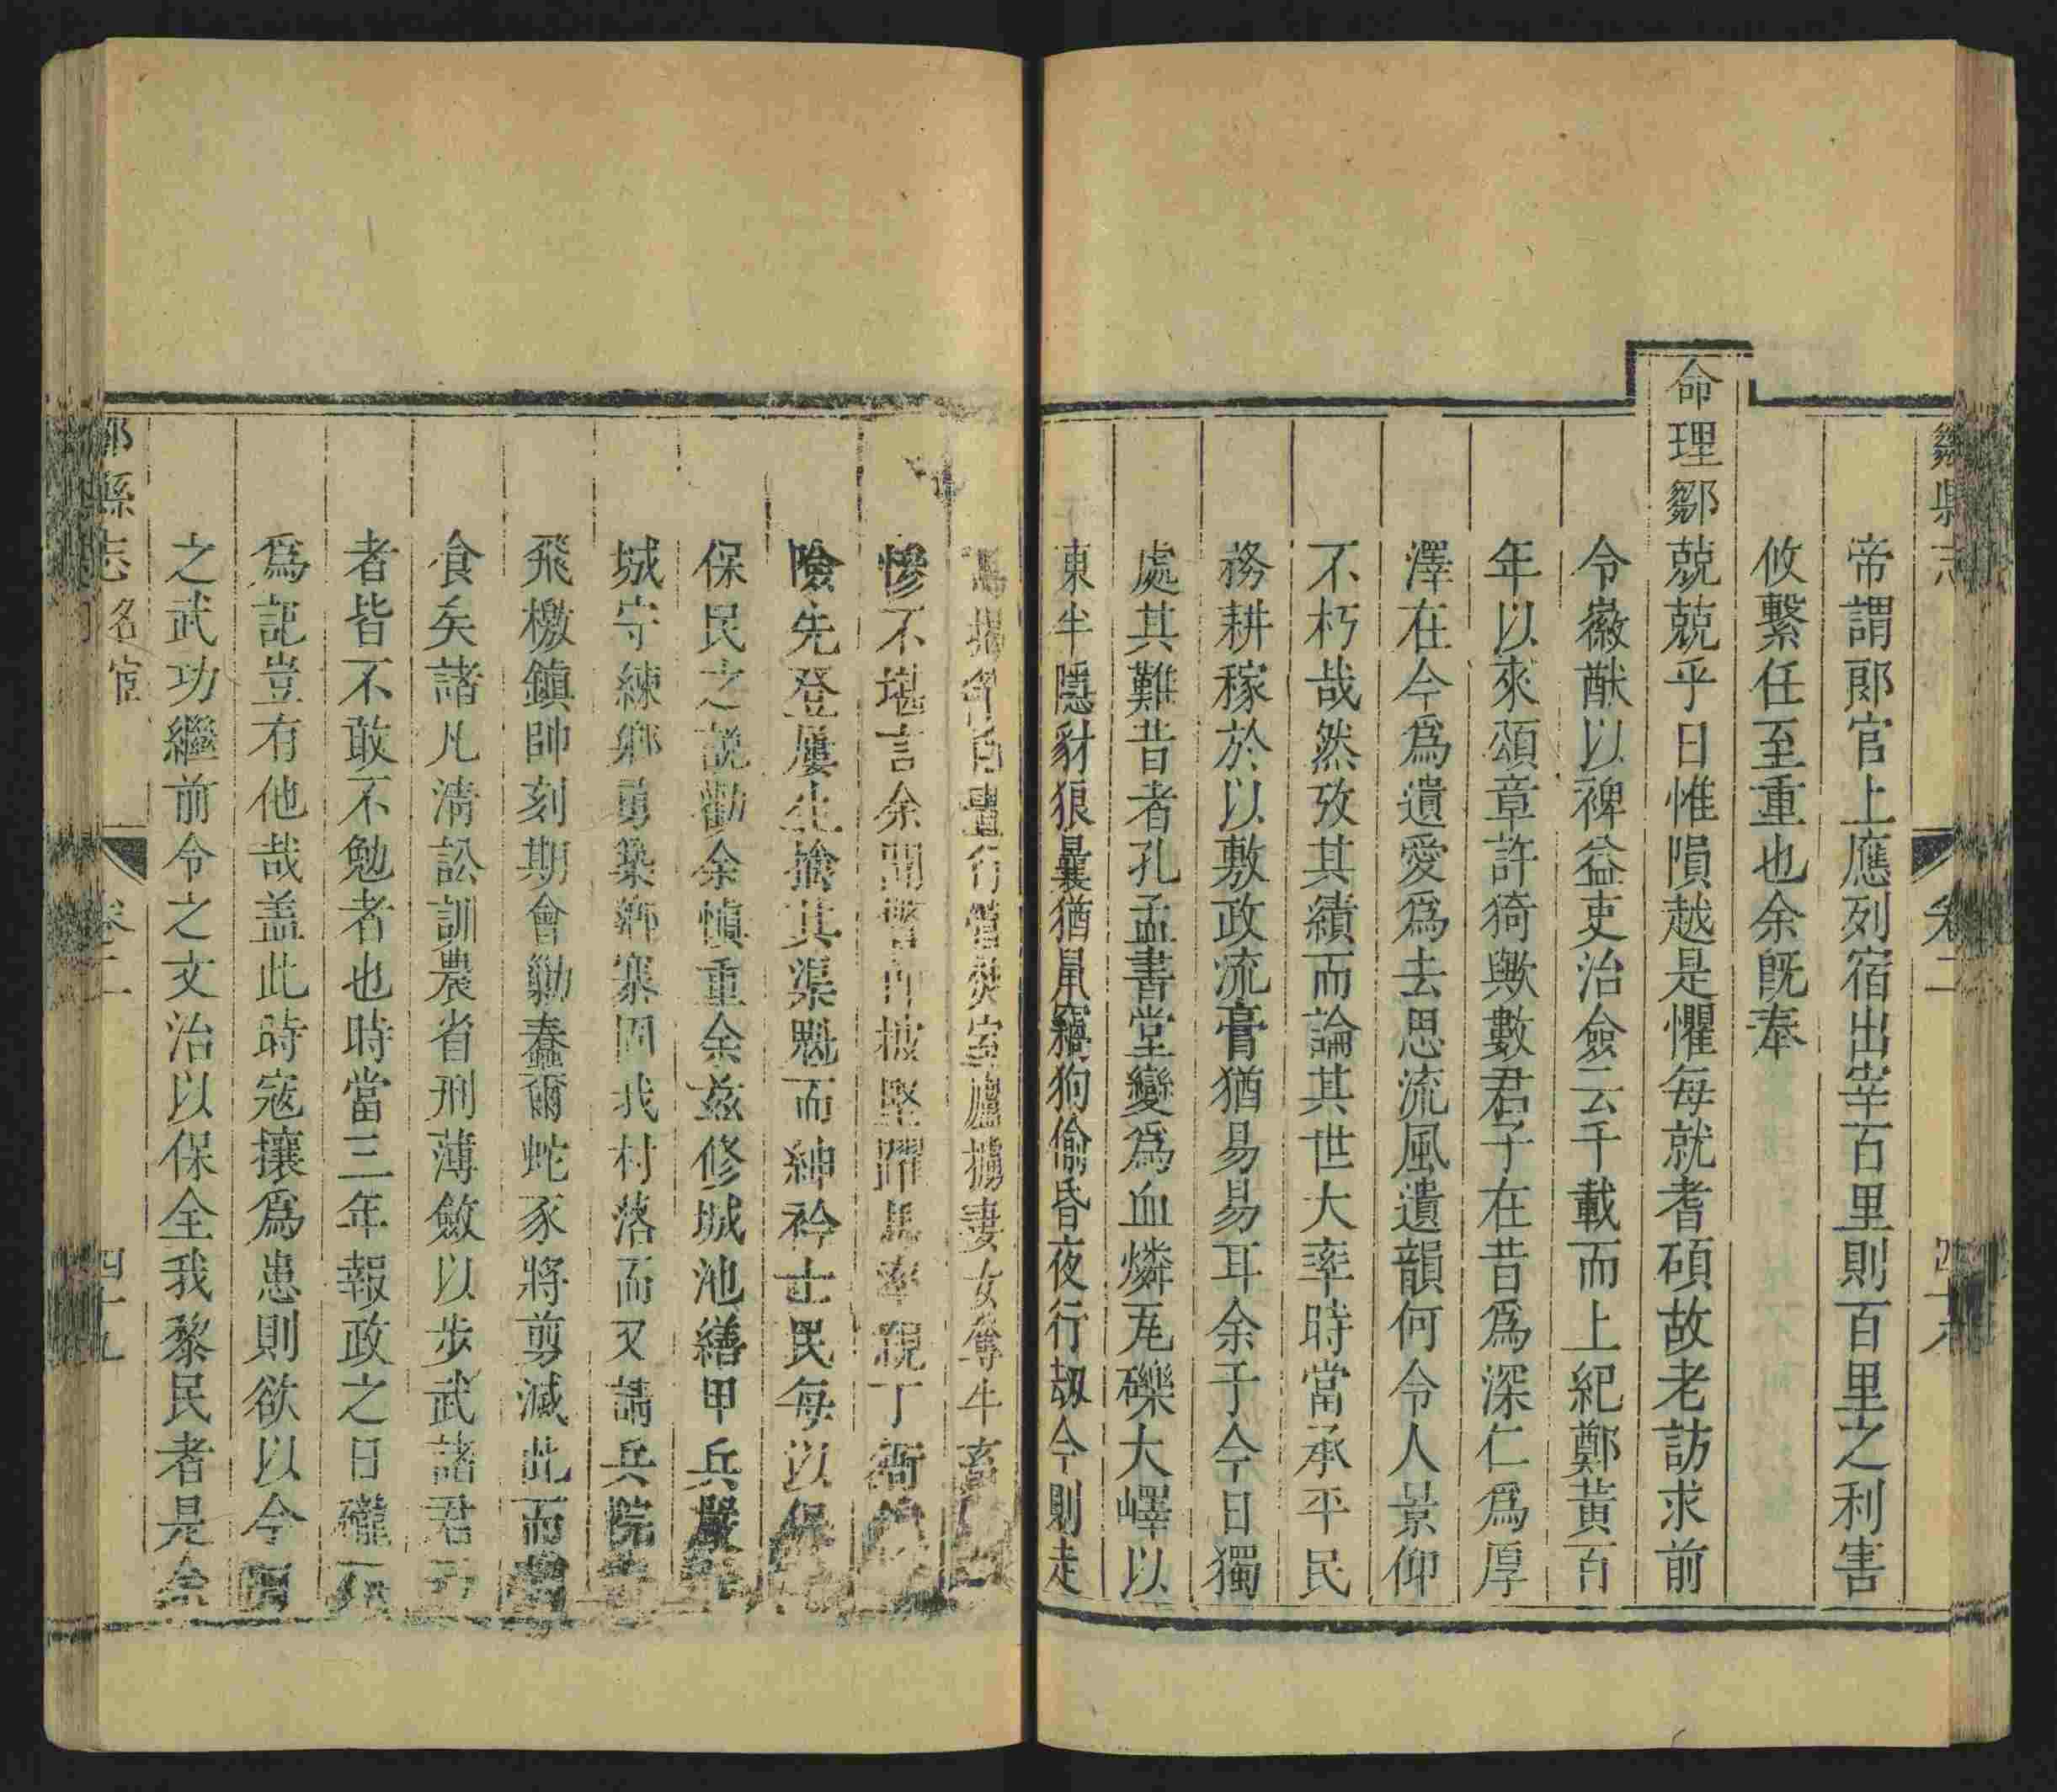 帝謂郎官上應列宿出宰百里則百里之利害
攸繫任至重也余旣奉
命理鄒兢兢乎日惟隕越是懼每就耆碩故老訪求前
令徽猷以裨益吏治僉云千載而上紀鄭黃百
年以來頌章許猗歟數君子在昔爲深仁爲厚
澤在今爲遺愛爲去思流風遺韻何令人景仰
不朽哉然攷其績而論其世大率時當承平民
務耕稼於以敷政流膏猶易易耳余于今日獨
處其難昔者孔孟書堂變爲血燐瓦礫大嶧以
東半隱豺狼曩猶鼠竊狗偷昏夜行刼今則走
行營焚室廬擄妻女奪牛畜
慘不堪言余聞警即披堅躍馬率親丁衙
險先登屢生擒其渠魁而紳衿士民每以保
保民之說勸余愼重余茲修城池繕甲兵嚴
城守練鄉勇築鄉寨固我村落而又請兵院
飛檄鎭帥刻期會勦蠢爾蛇豕將剪滅此而
食矣諸凡淸訟訓農省刑薄斂以步武諸君
者皆不敢不勉者也時當三年報政之日礲石
爲記豈有他哉盖此時寇攘爲患則欲以今
之武功繼前令之文治以保全我黎民者是余
鄒縣志 名宦 卷二 四十九